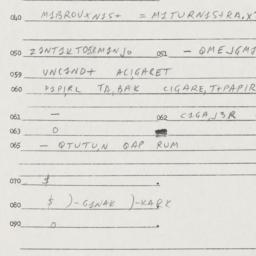 040 MIBROUXNIS+ = MITURNISTRA.X
050 ZINTIKTOSRMINJO 051 - QMEJGMI
059 UNCIND+ ACIGARET
060 PIPIRL TA,BAK CIGARE,T+PAPIR
061 - 062 CIGA,J3R
063 O
065 - QTUTU,N QAP RUM
070 $
080 $ )-GINAK )-KARK
090 O